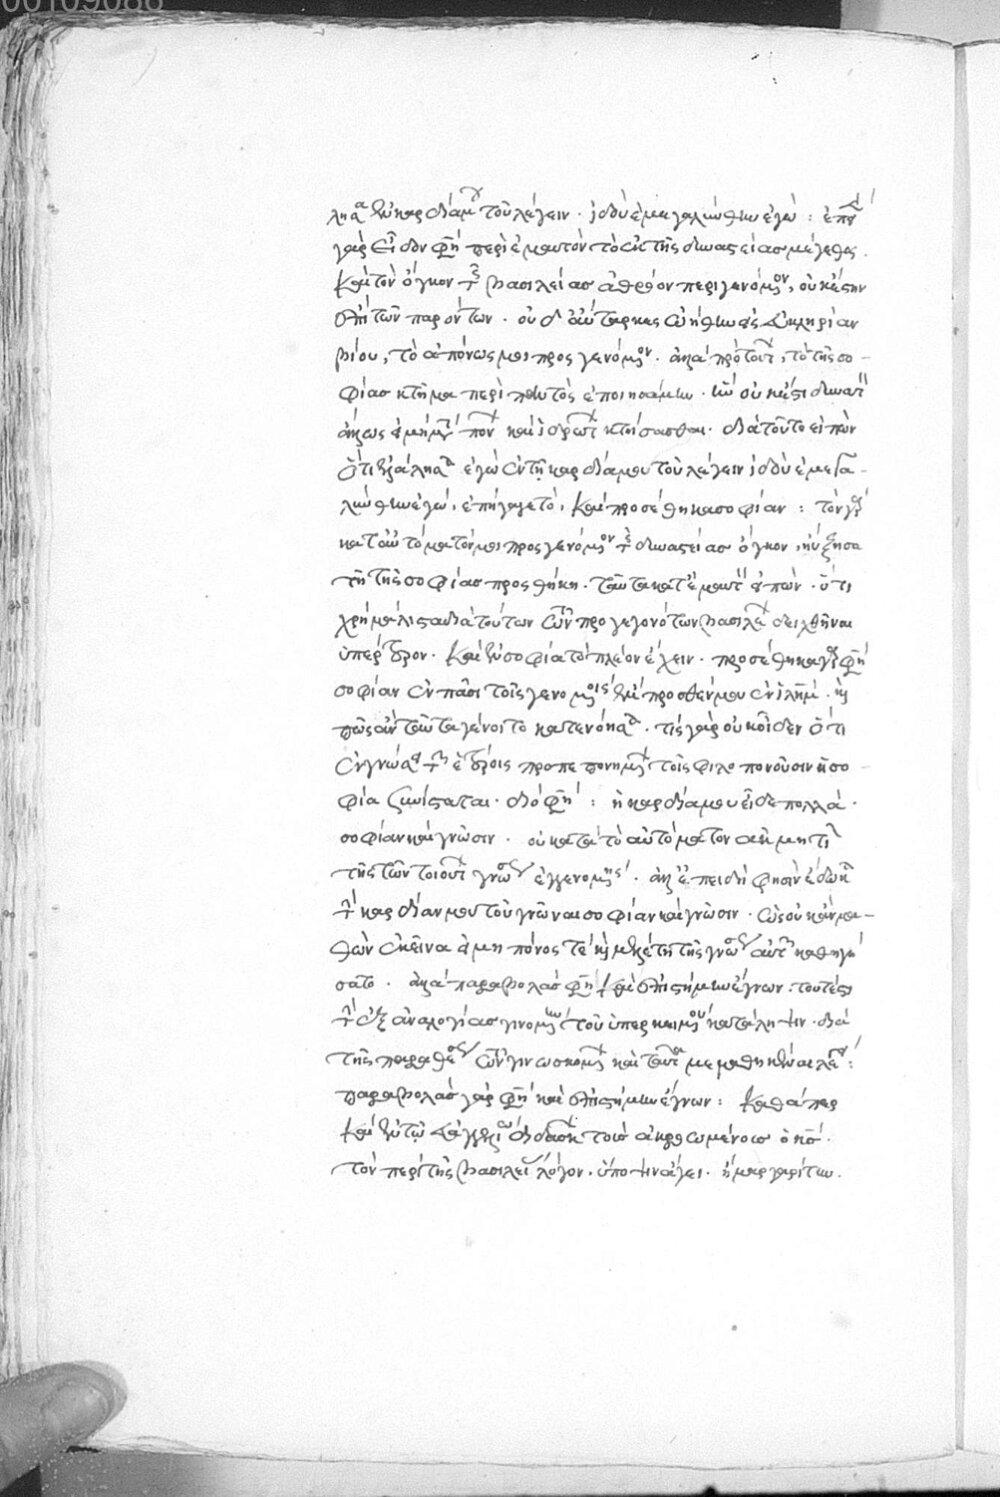 00109088
λησα ἐν καρδίαμου τοῦ λέγειν · ἰδοὺ ἐμεγαλύνθην ἐγώ : ἐπεὶ
γὰρ εἶδον φησὶ περὶ ἐμαυτὸν τὸ ἐκ τῆς δυναστείασ μέγεθος.
καὶ τὸν ὄγκον τῆς βασιλείασ ἀθρόον περιγενόμενον, οὐκ ἔστην
ἐπὶ τῶν παρόντων · οὐδ' αὔταρκες ᾠήθην εἰς
βίου, τὸ ἀπόνως μοι προσγενόμενον · ἀλλὰ πρὸ τούτων, τὸ τῆς σο-
φίασ κτῆμα περὶ παντὸς ἐποιησάμην · ἣν οὐκ ἔστι δυνατὸν
ἄλλως ἐμὴ μετὰ πόνων καὶ ἱδρώτων κτήσασθαι · διὰ τοῦτο εἰπὼν
ὅτι ἐλάλησα ἐγὼ ἐν τῇ καρδίαμου τοῦ λέγειν ἰδοὺ ἐμεγα-
λύνθην ἐγώ, ἐπήγαγε τό, καὶ προσέθηκα σοφίαν : τὸν γὰρ
κατ' αὐτόματόν μοι προσγενόμενον τῆς δυναστείασ ὄγκον, ηὔξησα
τῇ τῆς σοφίασ προσθήκῃ · ταῦτα κατ' ἐμαυτὸν εἰπών · ὅτι
χρὴ μάλιστα διὰ τούτων τῶν προγεγονότων βασιλέων δειχθῆναι
ὑπέρτερον · καὶ ἐν σοφία τὸ πλέον ἔχειν · προσέθηκα γὰρ φησὶ
σοφίαν ἐν πᾶσι τοῖς γενομένοις ἔμπροσθέν μου ἐν ἰλημ · καὶ
πῶς ἂν ταῦτα γένοιτο κατενόησα · τίς γὰρ οὐκ οἶδεν ὅτι
ἐν γνώσει τῶν ἑτέροις προπεπονημένων τοῖς φιλοπονοῦσιν ἡ σο-
φία συνίσταται · διό φησι : ἡ καρδία μου εἶδε πολλά ·
σοφίαν καὶ γνῶσιν · οὐ κατὰ τὸ αὐτόματον ἀκμητὶ
τῆς τῶν τοιούτων γνώσεως ἐγγενομένης · ἀλλ' ἐπειδή φησιν ἔδωκα
τὴν καρδίαν μου τοῦ γνῶναι σοφίαν καὶ γνῶσιν · ὡς οὐκ ἂν μα-
θὼν ἐκεῖνα εἰ μὴ πόνος τε καὶ μελέτη τῆς γνώσεως αὐτῶν καθηγή
σατο · ἀλλὰ παραβολάσ φησι καὶ ἐπιστήμην ἔγνων : τουτέστι
τὴν ἐξ ἀναλογίασ γινομένην τοῦ ὑπερκειμένου κατάληψιν · διὰ
τῆς παραθέσεως τῶν γινωσκομένων καὶ ταῦτα μεμαθηκέναι λέγει :
παραβολὰσ γάρ φησι καὶ ἐπιστήμην ἔγνων : καθάπερ
καὶ ἐν τῷ εὐαγγελίω διδάσκει τοὺσ ἀκροωμένουσ ὁ κς ·
τὸν περὶ τῆς βασιλείας λόγον · ὑπ' ὄψιν ἄγει · ἢ μαργαρίτην.